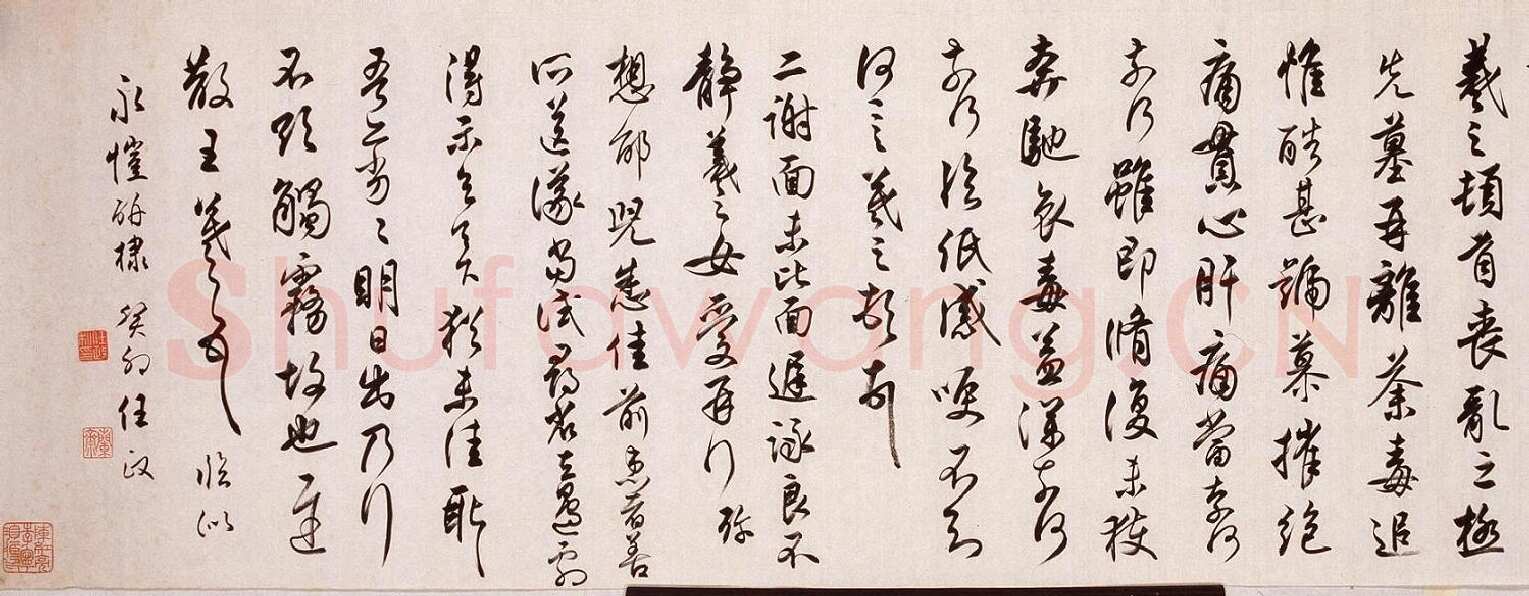 羲之頓首喪亂之極
先墓再離荼毒追
惟酷甚號慕摧絕
痛貫心肝痛當奈何
奈何雖即脩復未獲
奔馳哀毒益深奈何
奈何臨紙感哽不知
何言羲之頓首
二謝面未比面遲詠良不
靜羲之女愛再拜
想邵兒悉佳前患者善
所送議當試尋省左邊劇
得示知足下猶未佳耿
吾亦劣劣明日出乃行
不欲觸霧故也遲
散王羲之頓首 臨似
永愷研棣 癸卯任政
Shufawang.CN